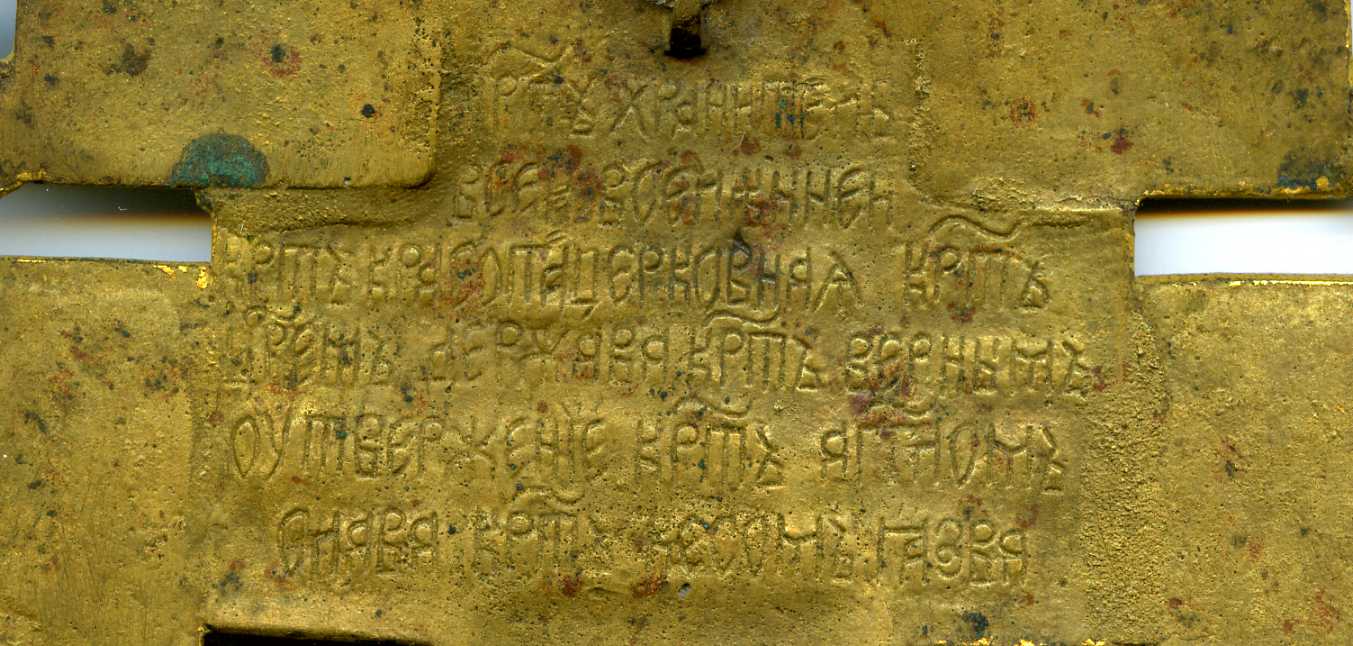 КР҃ТЪ ХРАНИТЕЛЬ
ВСЕИ ВСЕЛѢННЕИ
КРТЪ КРАСОТА ЦЕРКОВНАѦ КР҃ТЪ
ЦР҃ЕМЪ ДЕРЖАВА КР҃ТЪ ВЕРНЫМЪ
ОУТВЕРЖЕНІЕ КР҃ТЪ АГ҃ЛОМЪ
СЛАВА КР҃ТЪ БЕСОМЪ ꙖЗВА